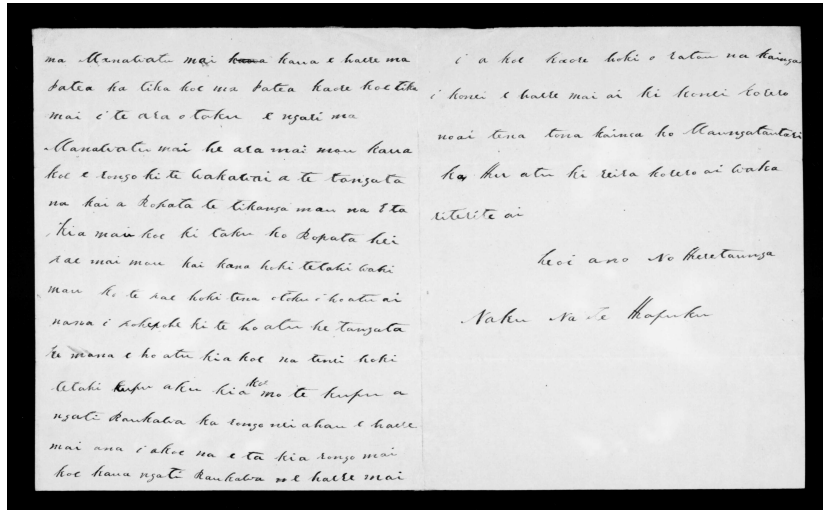 ma Manawatu mai kaua e haere ma
Patea ka tika koe ma Patea kaore koe tika
mai i te ara otoku e ngati ma
Manawatu mai he ara mai mou kaua
koe e rongo ki te wakawai a te tangata
na kai a Ropata te tikanga mau na E ta
kia mau koe ki taku ko Ropata hei
rae mai mou kai kana hoki tetahi wahi
mau ko te rae hoki tena otoku i hoatu ai
nana i pohepohe ki te hoatu he tangata
ke mana e hoatu kia koe na tenei hoki
tetahi kupu aku kia koe mo te kupu a
ngati Raukawa ka rongo nei ahau e haere
mai ana i akoe na e ta kia rongo mai
koe kaua ngati Raukawa e haere mai
i a koe kaore hoki o ratou na kainga
i konei e haere mai ai ki konei korero
noai tena tona kainga ko Maungatautari
ka hu atu ki reira korero ai waka
riterite ai
heoi ano No Heretaunga
Naku Na Te Hapuku